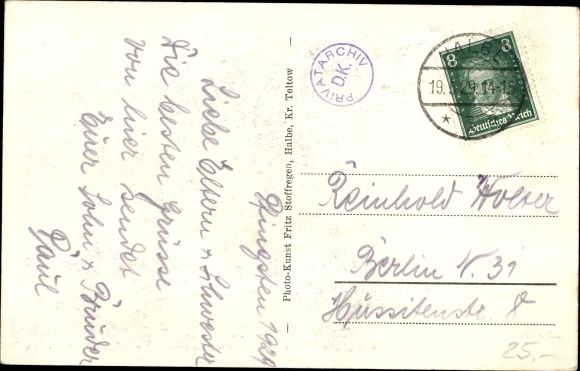 Pfingsten 1929
Liebe Eltern u. Schwester
Die besten Grüsse
von hier sendet
Euer Sohn u. Bruder
Paul
Photo-Kunst Fritz Stoffregen, Halbe, Kr. Teltow
PRIVATARCHIV
D.K.
HALBE
19.5.29.14-15
8 8
Deutsches Reich
Reinhold Wolter
Berlin N. 31
Hussitenstr. 8
25.-